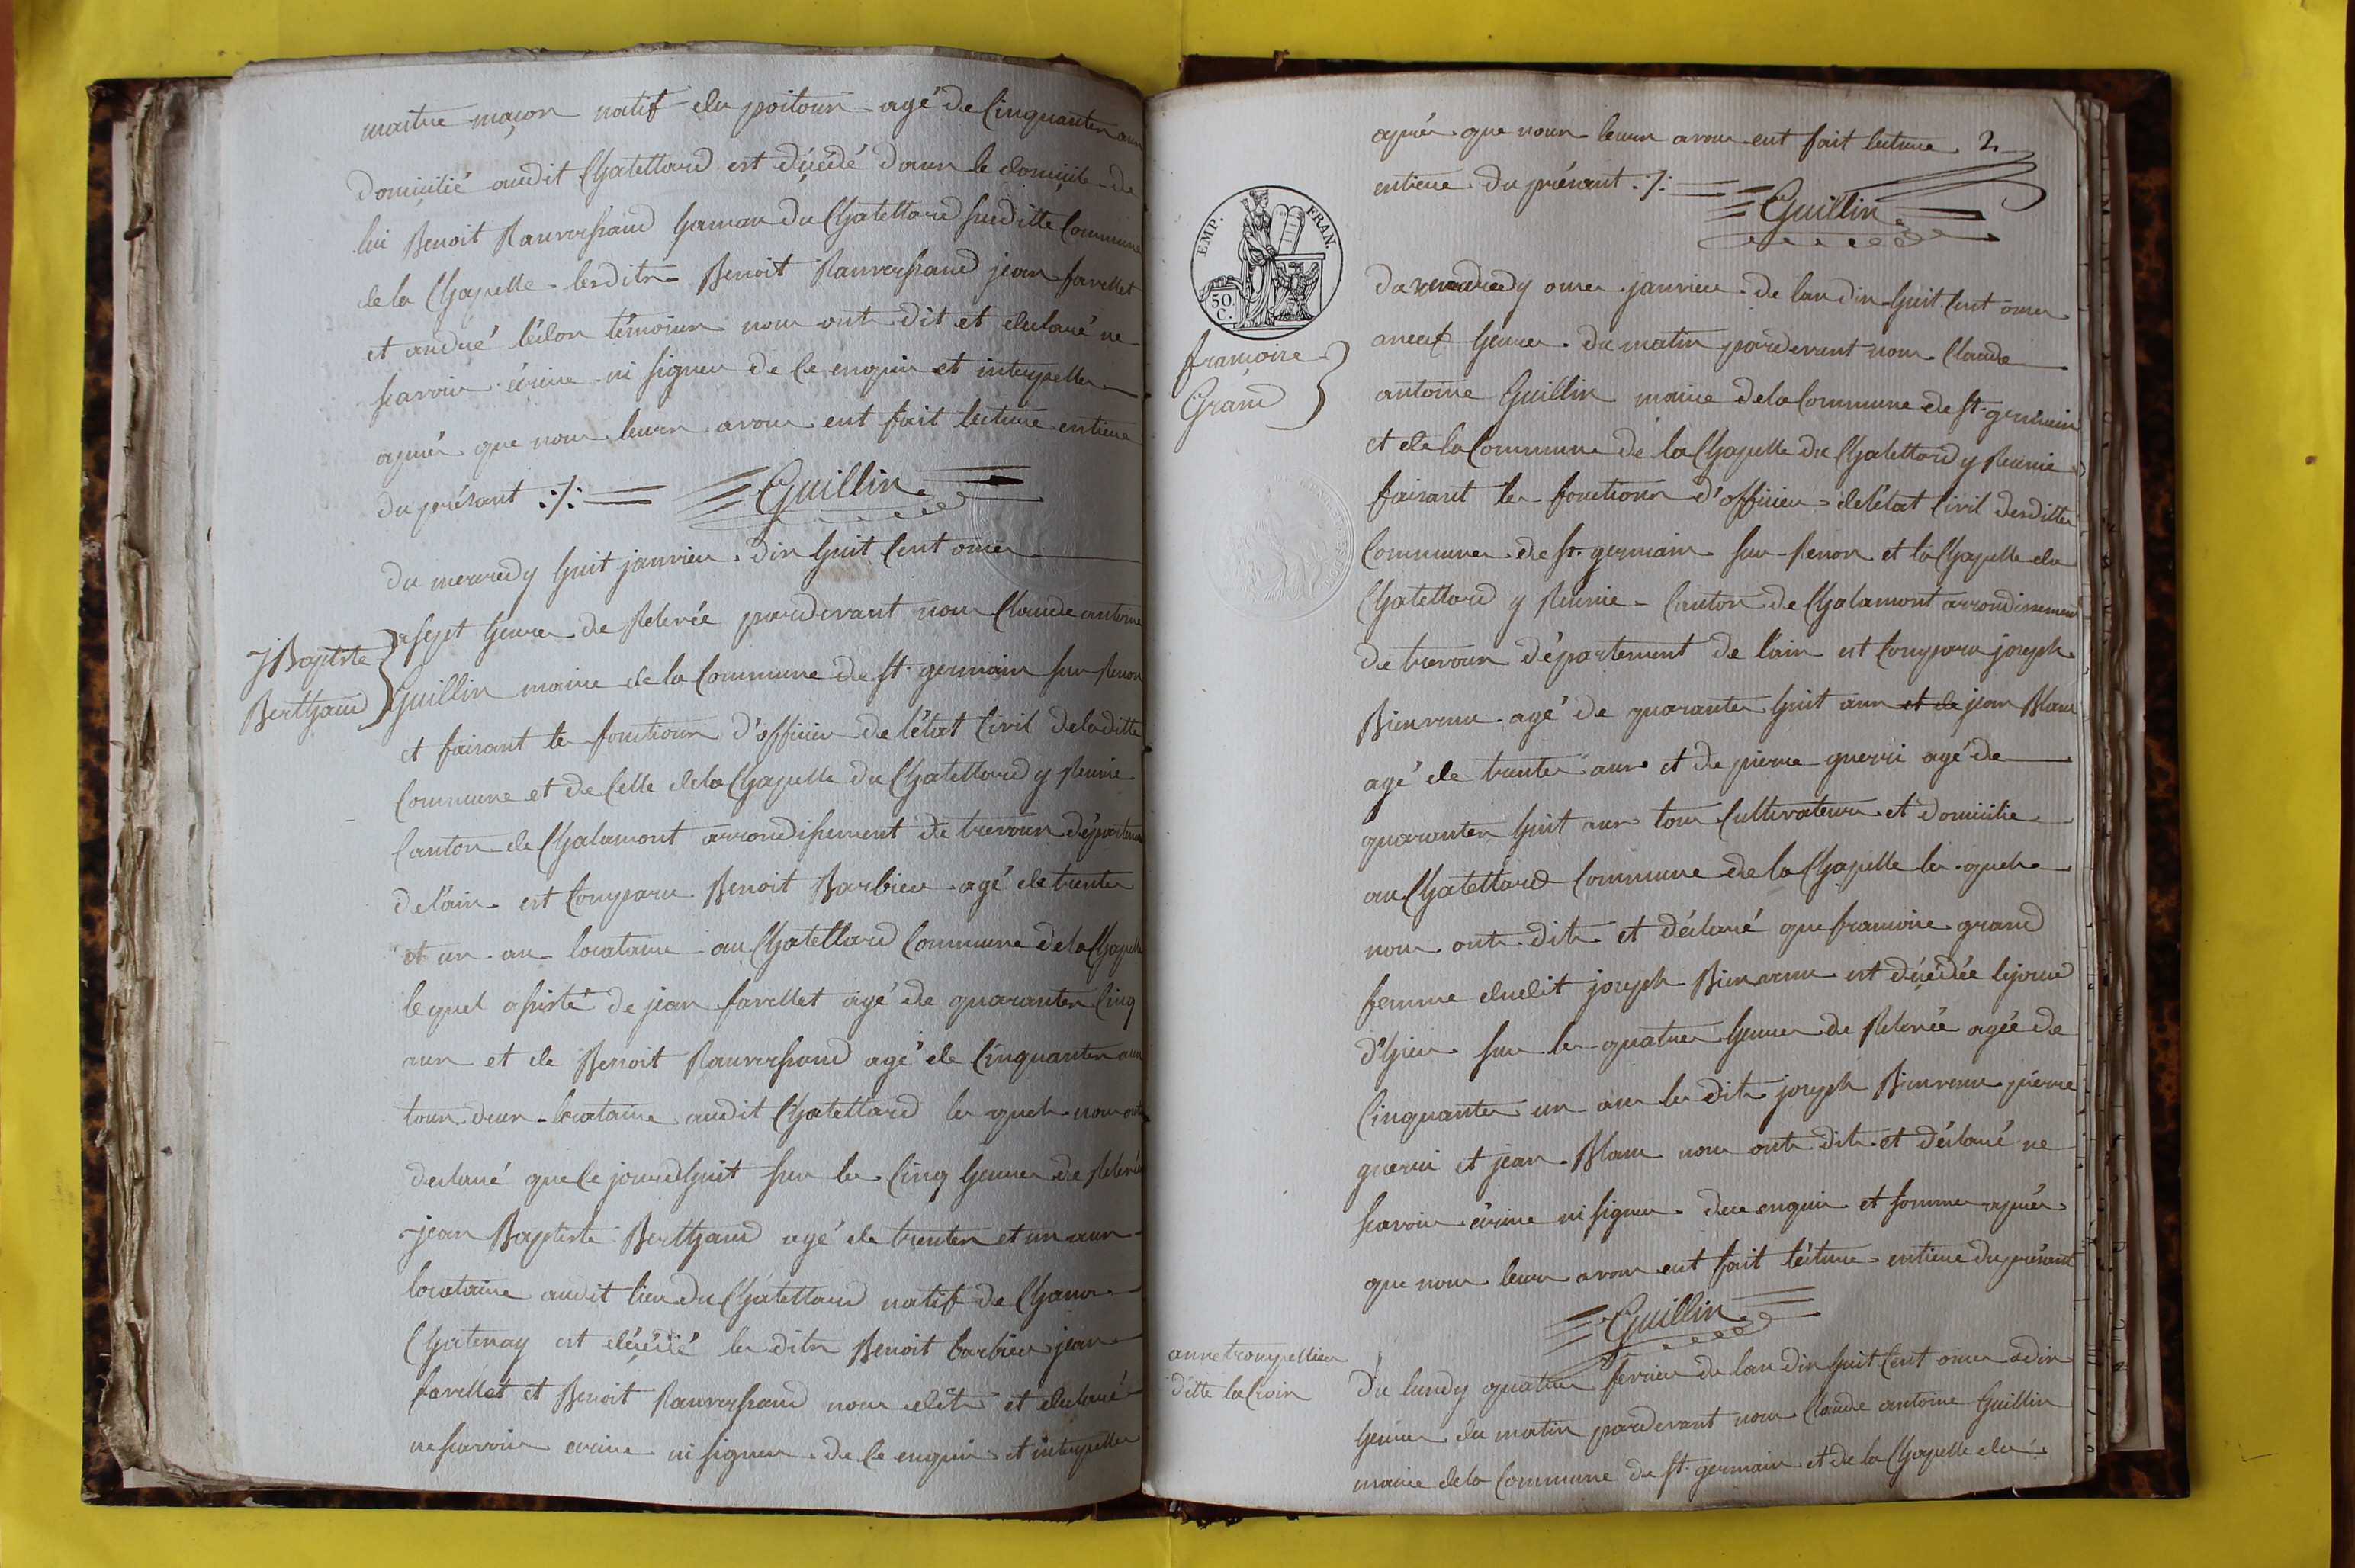 maitre maçon natif du poitour agé de Cinquantes ans
domicilié audit Chatellard est décédé dans le domicile de
lui Benoit Ranvershand du Chatellard sus ditte Commune
de la Chapelle lesdits Benoit Ranvershand jean favellet
et andué témoins nous ont dit et declaré ne
scavoir écrire ni signer de ce enquis et interpelles
aprés que nous leurs avons ent fait lecture entiere
du présant ./.
Guillin
J Baptiste
Berthaud
du mercredy huit janvier dix huit Cent onze
a sept heures de Relevée pardevant nous Claude antoine
Guillin maire de la Commune de st. germain sur Renon
et faisant les fonctions d'officier de l'état Civil de laditte
Commune et de Celle de la Chapelle du Chatellard y Reunie
Canton de Chalamont arrondissement de trevoux département
de l'ain est Comparu Benoit Barbier agé de trente
et un ans locataire au Chatellard Commune de la Chapelle
le quel assisté de jean favellet agé de quarantes Cinq
ans et de Benoit Ranvershand agé de Cinquantes ans
tous deux locataire audit Chatellard les quels nous ont
declaré que Ce jourdhuit sur les Cinq heures de Relevée
jean Baptiste Berthaud agé de trentes et un ans
locataire audit lieu du Chatellard natif de
Chatenay est décédé les dits Benoit barbier jean
favellet et Benoit Ranvershand nous dits et declaré
ne scavoir ecrire ni signer de Ce enquis et interpelles
aprés que nous leurs avons ent fait lecture 2
entiere du présant ./.
Guillin
EMP. FRAN.
50 C.
francoise
Grand
Du vendredy onze janvier de l'an dix huit Cent onze
a neuf heures du matin pardevant nous Claude
antoine Guillin maire de la Commune de st. germain
et de la Commune de la Chapelle du Chatellard y Reunie
faisant les fonctions d'officier de l'état Civil desdittes
Communes de st. germain sur Renon et la Chapelle du
Chatellard y Reunie Canton de Chalamont arrondissement
de trevoux département de l'ain est Comparu joseph
Bienvenu agé de quarantes huit ans et de jean Blanc
agé de trentes ans et de pierre guerri agé de
quarantes huit ans tous Cultivateurs et domicilie
au Chatellard Commune de la Chapelle les quels
nous onts dits et déclaré que francoise grand
femme dudit joseph Bienvenu est décédée le jour
d'hier sur les quatres heures de Relevée agée de
Cinquantes un ans les dits joseph Bienvenu pierre
guerri et jean Blanc nous onts dits et déclaré ne
scavoir écrire ni signer de ce enquis et sommes aprés
que nous leurs avons ent fait lécture entiere du présant
Guillin
anne trompellier
ditte la Croix
Du lundy quatres fevrier de l'an dix huit Cent onze a dix
heures du matin pardevant nous Claude antoine Guillin
maire de la Commune de st. germain et de la Chapelle du